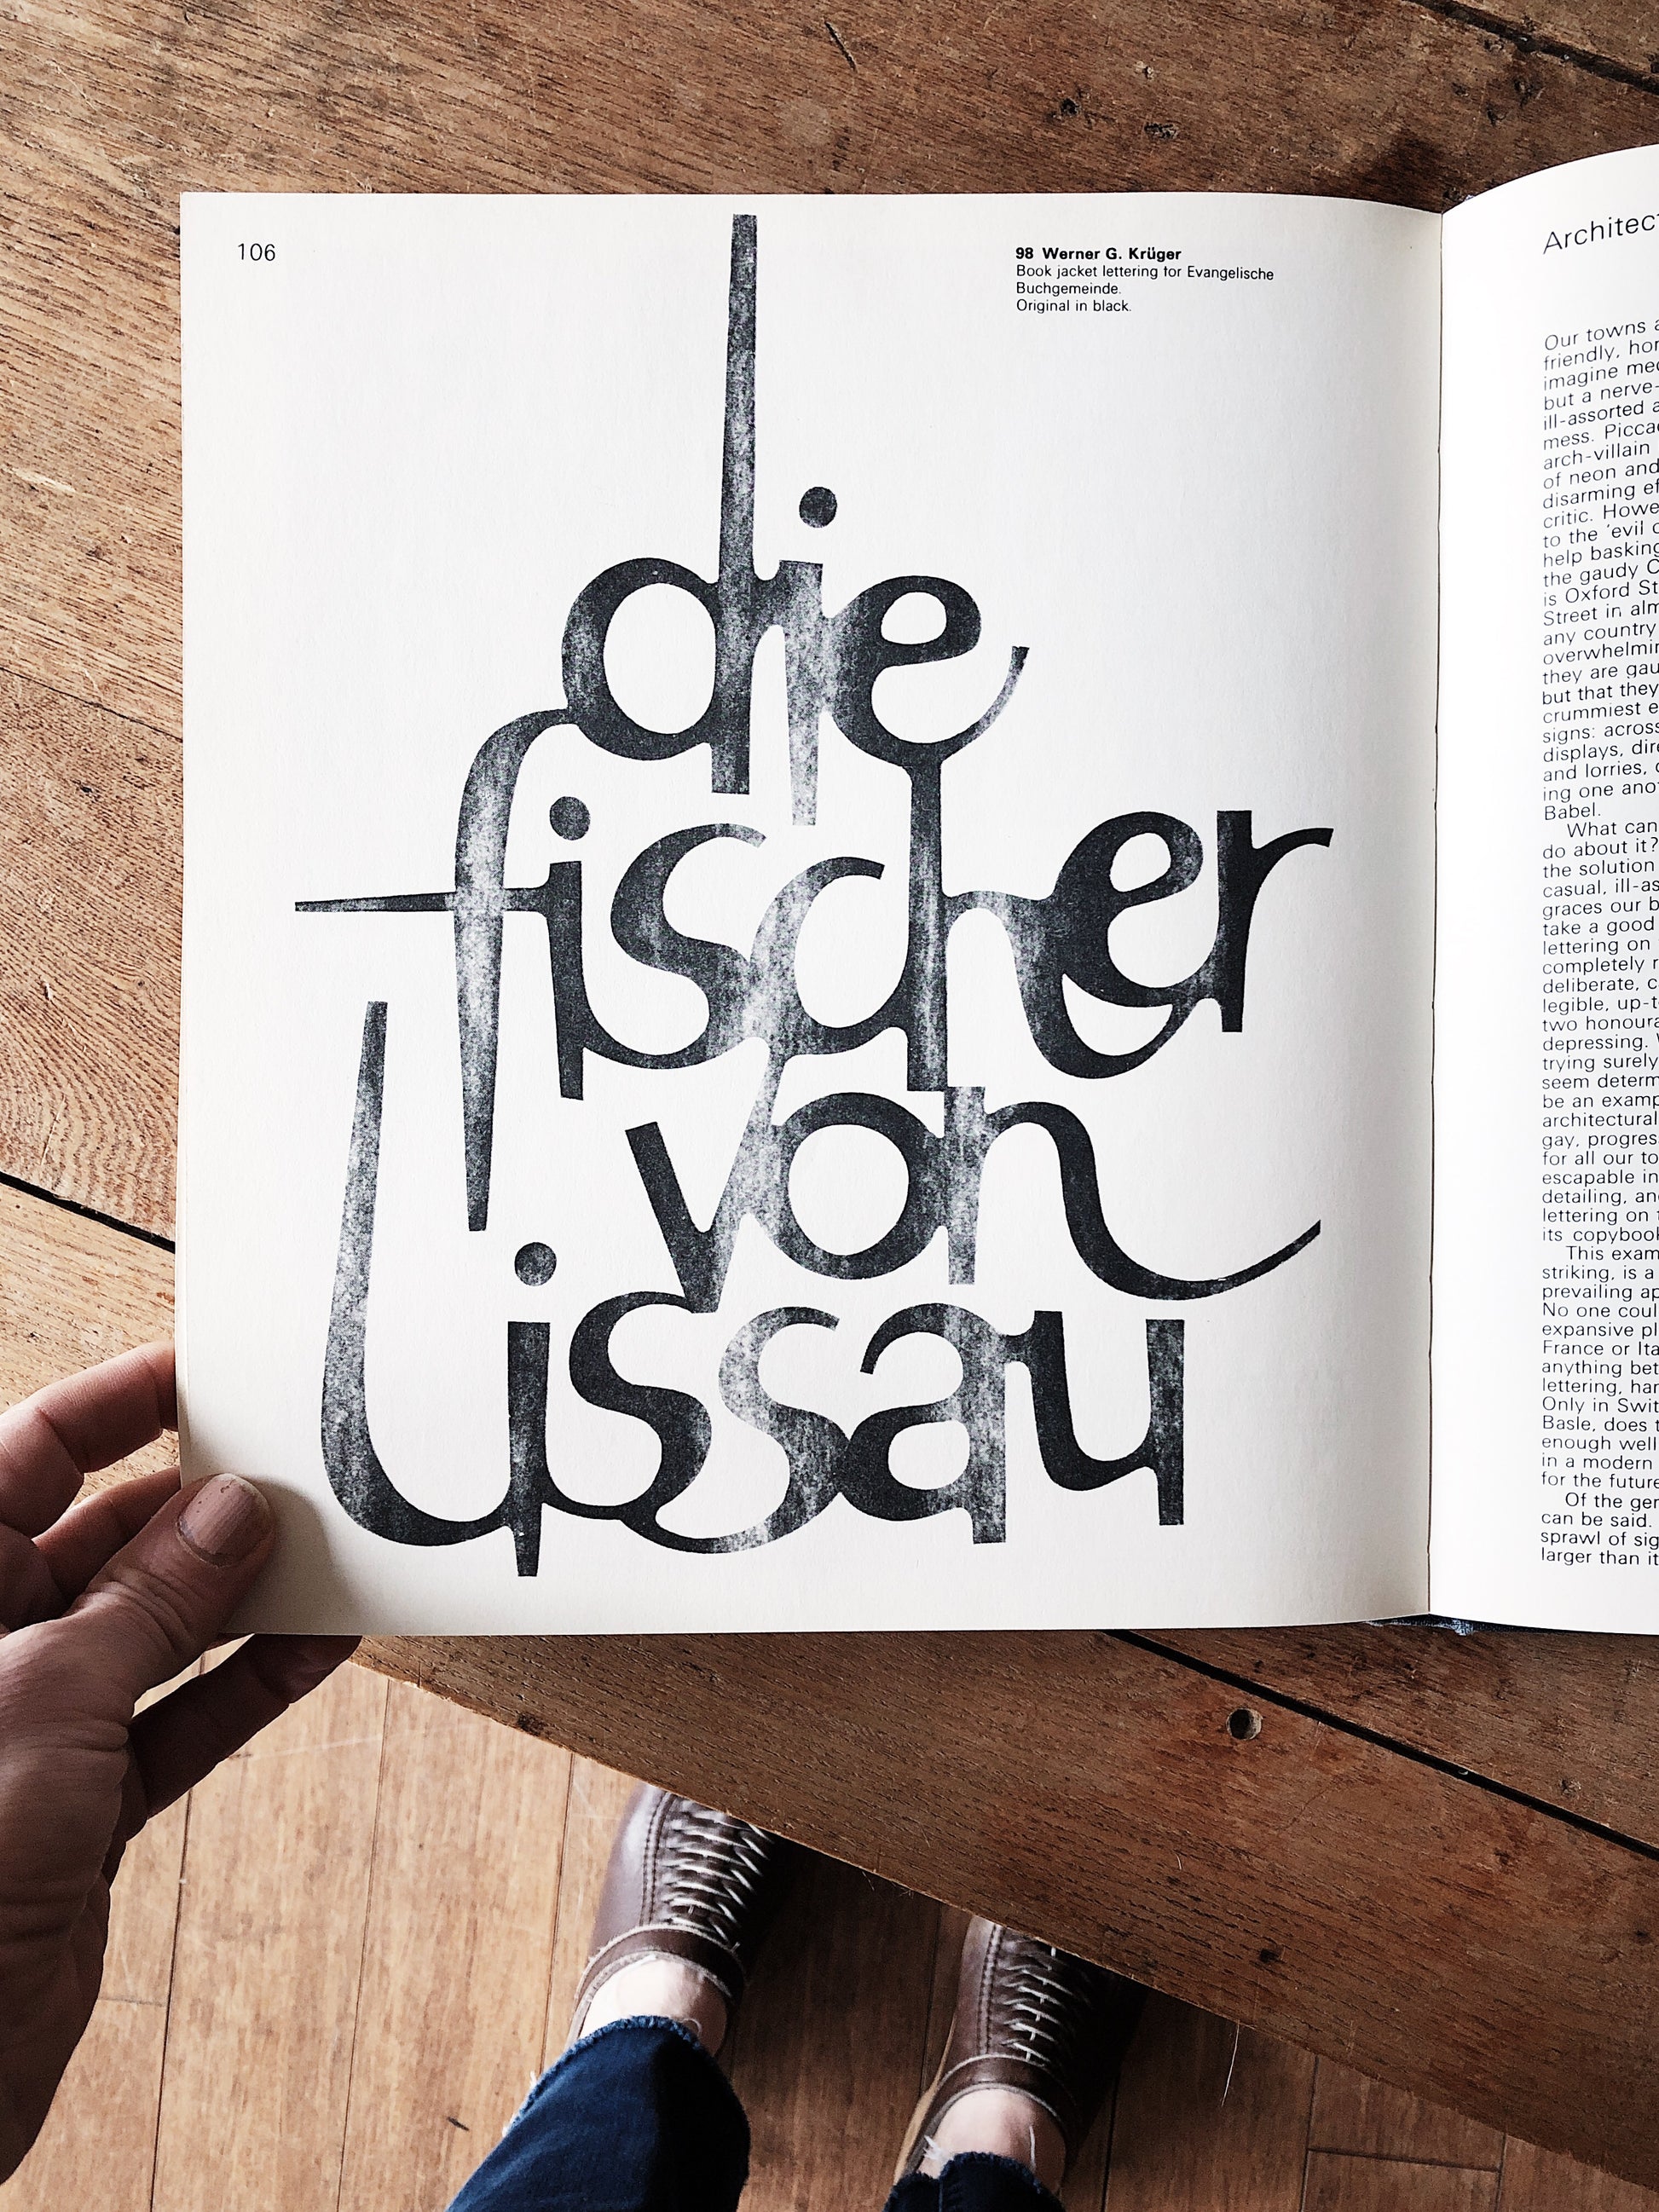 106
98 Werner G. Krüger
Book jacket lettering for Evangelische
Buchgemeinde.
Original in black.
die
fischer
von
lissau
Our towns
friendly,
imagine
but a nerve-
ill-assorted
mess.
arch-villain
of neon and
disarming
critic.
to the 'evil
help basking
the gaudy
is Oxford
Street in
any country
overwhelming
they are
but that they
crummiest
signs: across
displays,
and lorries,
ing one
Babel.
What can
do about it?
the solution
casual,
graces our
take a good
lettering on
completely
deliberate,
legible,
two
depressing.
trying surely
seem
be an example
architectural
gay,
for all our
escapable
detailing,
lettering on
its
This
striking, is a
prevailing
No one
expansive
France or
anything
lettering,
Only in
Basle, does
enough well
in a modern
for the future
Of the
can be said.
sprawl of
larger than